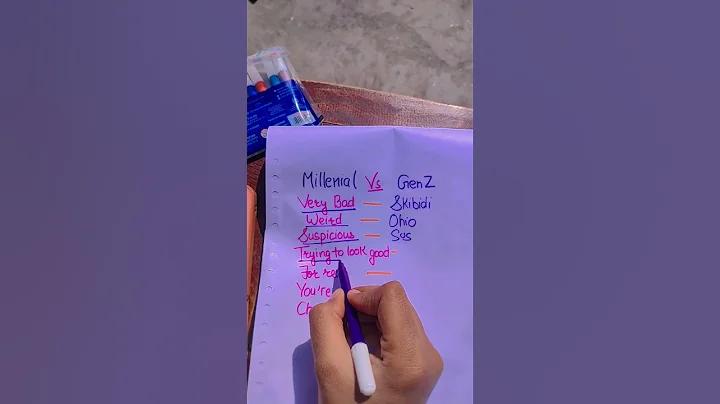 Millenial Vs Gen Z
Very Bad — Skibidi
Weird — Ohio
Suspicious — Sus
Trying to look good -
For —
You're